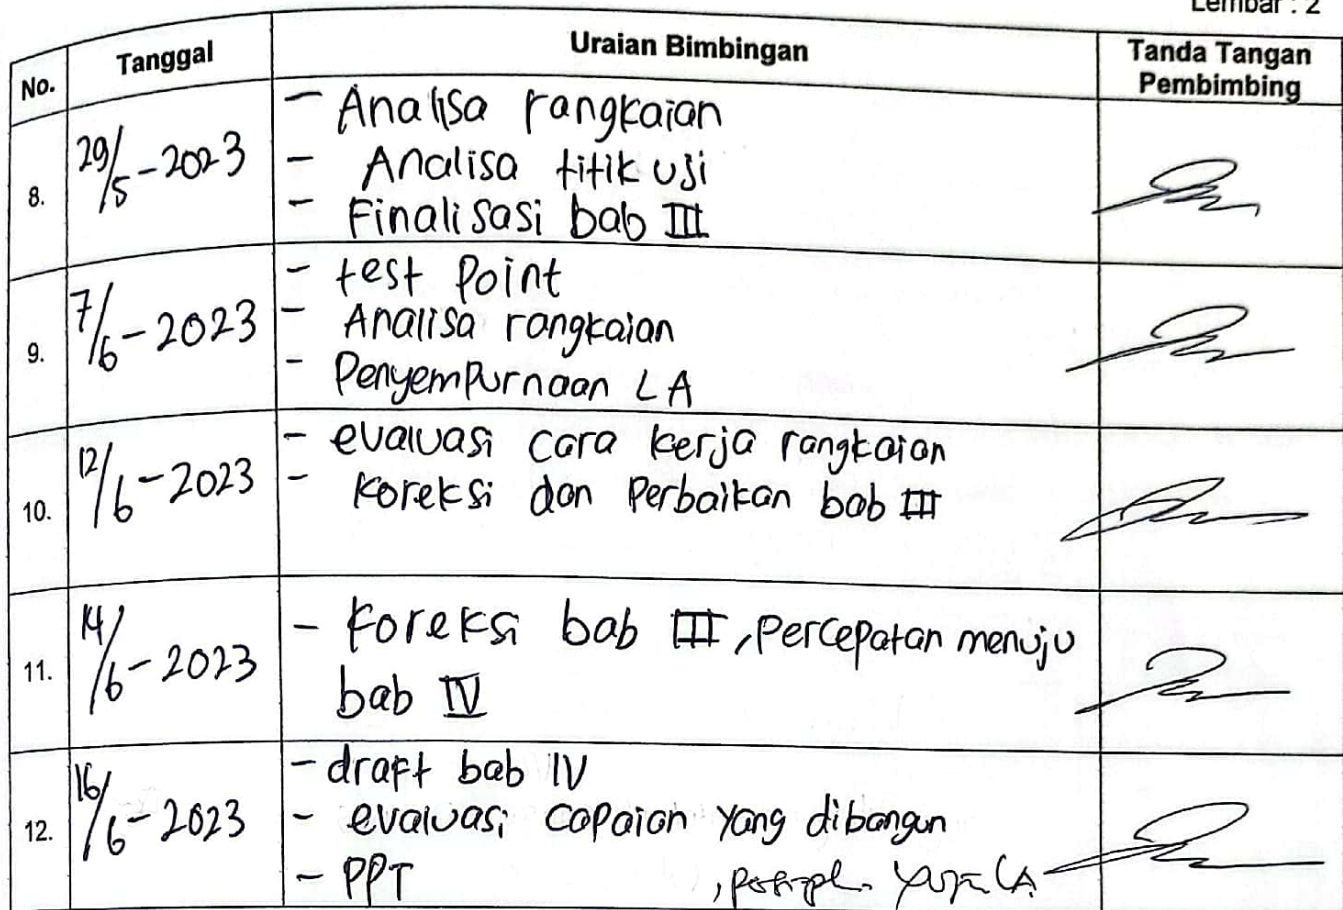 Lembar : 2
No. Tanggal Uraian Bimbingan Tanda Tangan Pembimbing
8. 29/5-2023
- Analisa rangkaian
- Analisa titik uji
- Finalisasi bab III
9. 7/6-2023
- test Point
- Analisa rangkaian
- Penyempurnaan LA
10. 12/6-2023
- evaluasi cara kerja rangkaian
- Koreksi dan Perbaikan bab III
11. 14/6-2023
- Koreksi bab III, Percepatan menuju
bab IV
12. 16/6-2023
- draft bab IV
- evaluasi capaian yang dibangun
- PPT